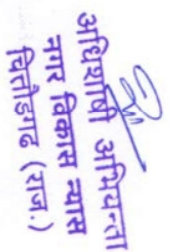 अधिशाषी अभियन्ता
नगर विकास न्यास
चित्तौड़गढ (राज.)